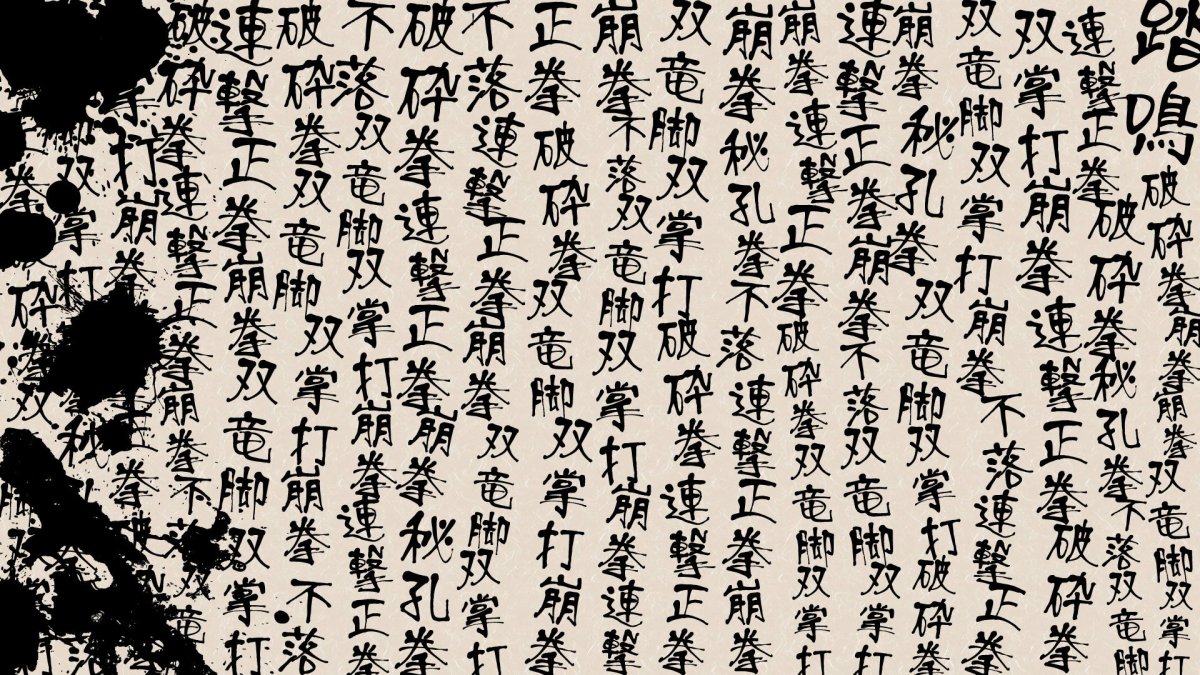 踏鳴破砕拳崩拳双竜脚双掌打
連撃正拳破砕拳秘孔拳不落双竜脚
双掌打崩拳連撃正拳破砕拳
双竜脚双掌打崩拳不落連撃正拳
崩拳秘孔拳双竜脚双掌打破砕拳
連撃正拳崩拳不落双竜脚双掌打
崩拳連撃正拳破砕拳双竜脚双掌打
崩拳秘孔拳不落連撃正拳崩拳
双竜脚双掌打破砕拳連撃正拳
崩拳不落双竜脚双掌打崩拳連撃
正拳破砕拳双竜脚双掌打崩拳
不落連撃正拳崩拳双竜脚双掌打
破砕拳連撃正拳崩拳秘孔拳
不落双竜脚双掌打崩拳連撃正拳
破砕拳双竜脚双掌打崩拳不落
連撃正拳崩拳双竜脚双掌打
破砕拳連撃正拳崩拳不落双竜
打崩拳正拳破
双掌打秘
拳砕拳双脚